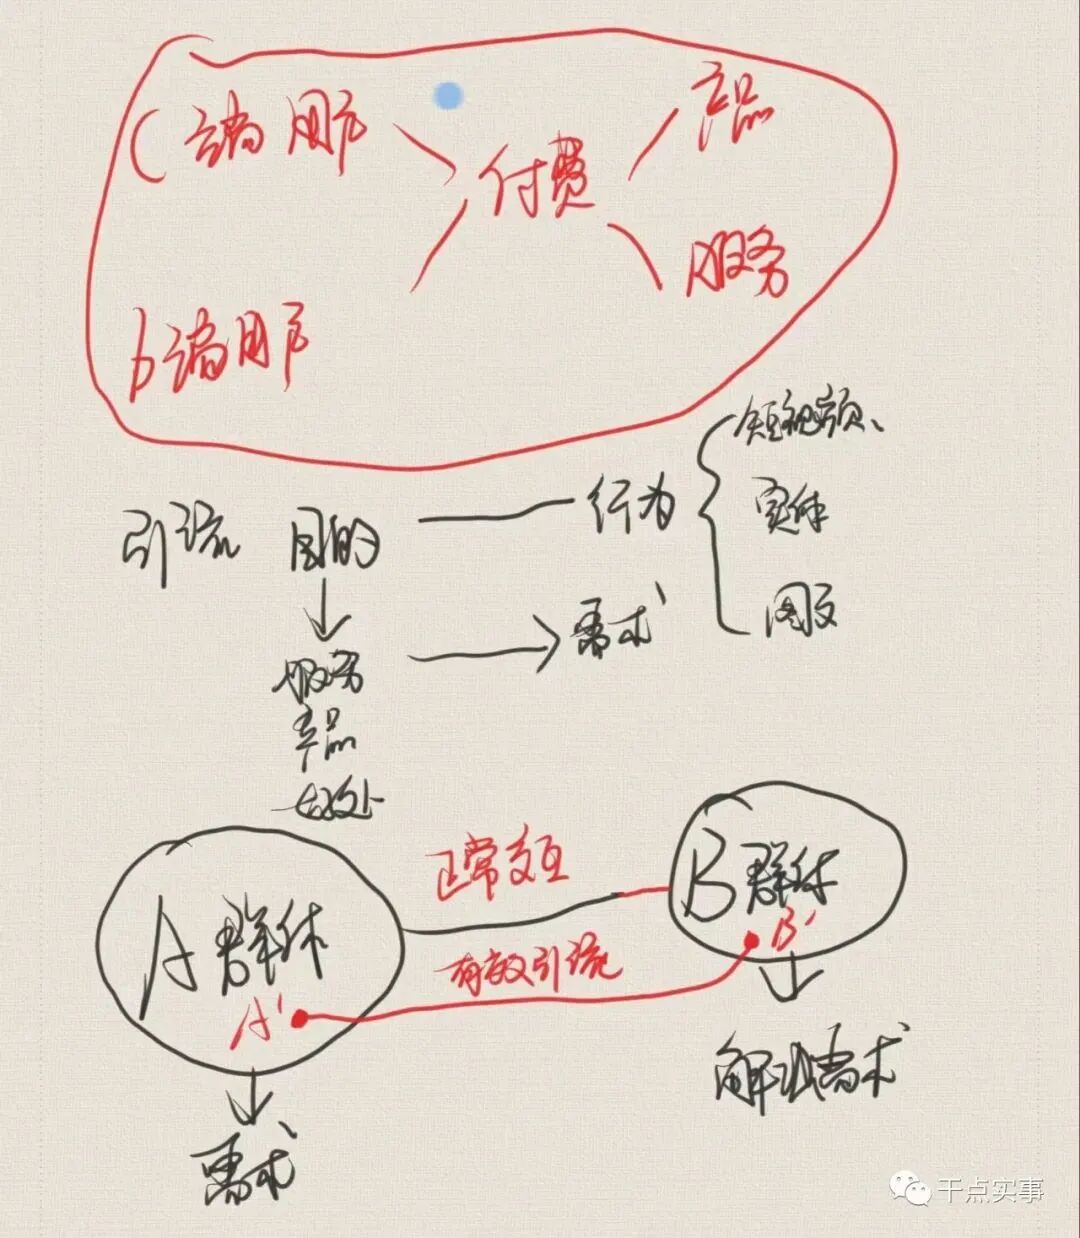 C端用户
付费
产品
服务
b端用户
短视频、
引流 目的
行为
实体
图文
需求
服务
产品
好处
正常交互
A群体
B群体
B'
有效引流
A'
解决需求
需求
干点实事